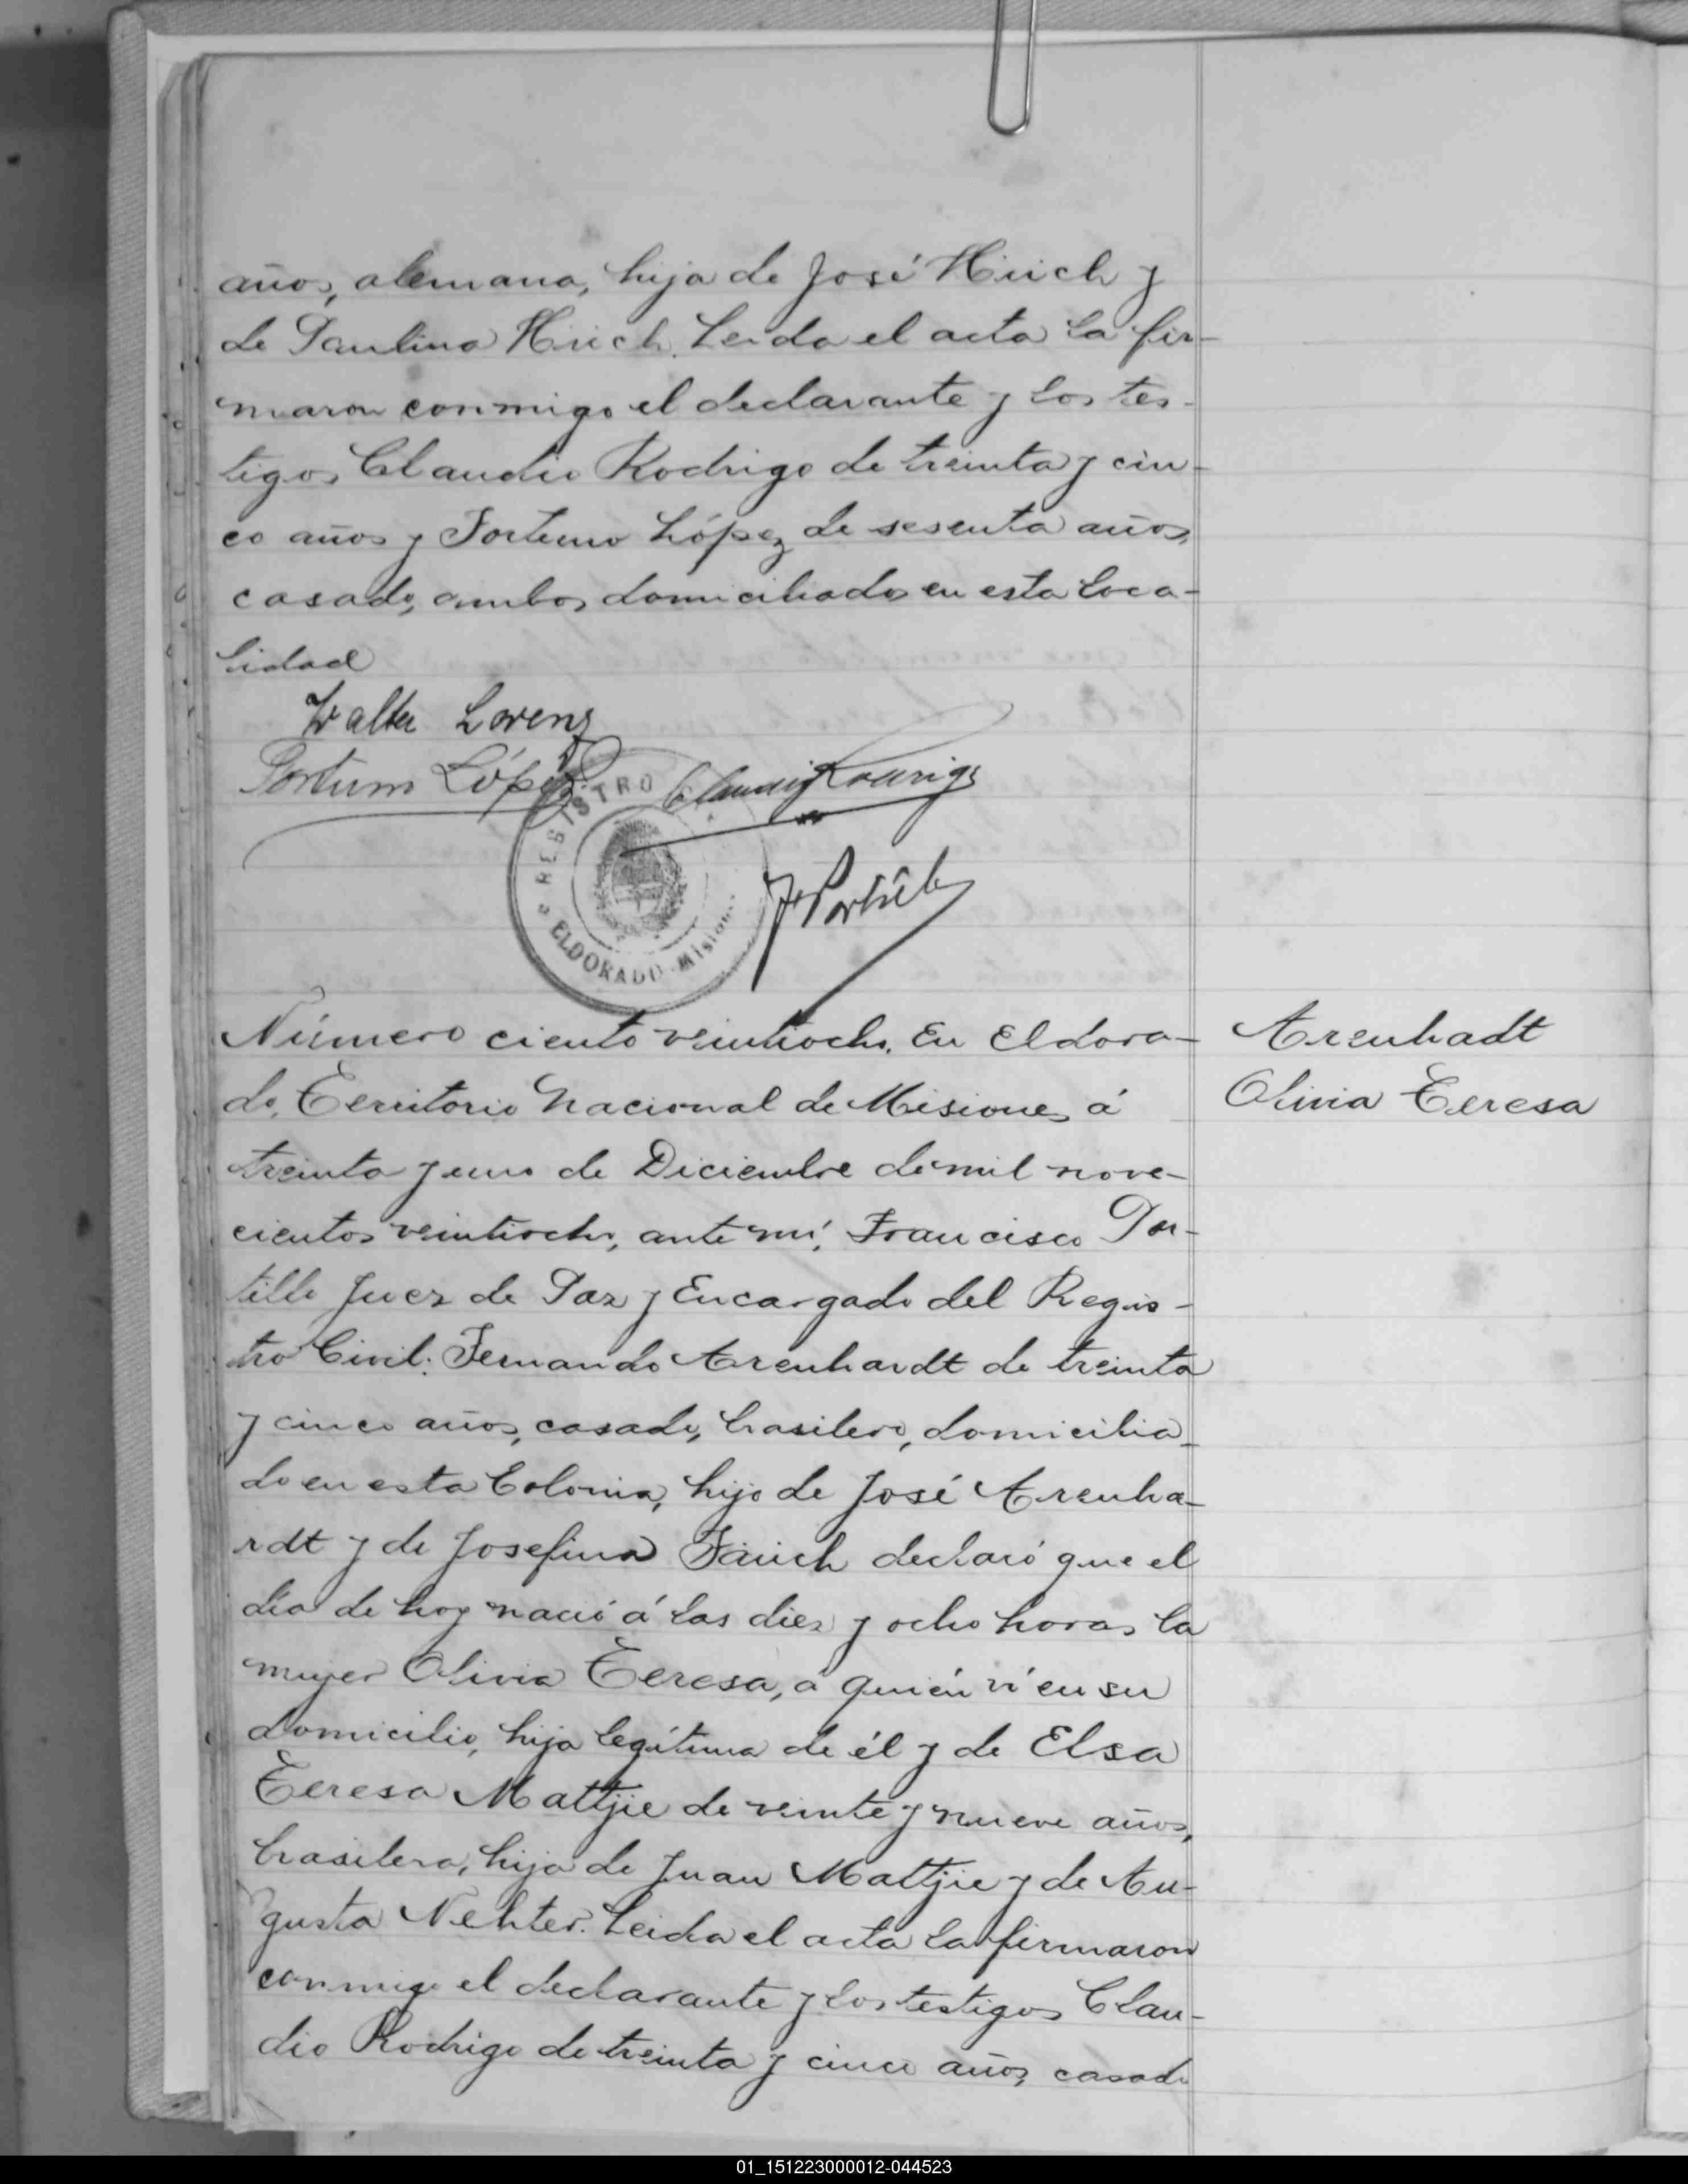 años, alemana, hija de José Hirich y
de Paulina Hirich. Leida el acta la fir-
maron conmigo el declarante y los tes-
tigos Claudio Rodrigo de treinta y cin-
co años y Fortuno López de sesenta años,
casado, ambos domiciliados en esta loca-
lidad
Walter Lorenz
López
REGISTRO
ELDORADO Misiones
Número ciento veintiocho. En Eldora-
do, Territorio Nacional de Misiones á
treinta y uno de Diciembre de mil nove-
cientos veintiocho, ante mí, Francisco Por-
tillo Juez de Paz y Encargado del Regis-
tro Civil: Fernando Arenhardt de treinta
y cinco años, casado, brasilero, domicilia-
do en esta Colonia, hijo de José Arenha-
rdt y de Josefina declaró que el
día de hoy nació á las diez y ocho horas la
mujer Olivia Teresa, á quién ví en su
domicilio, hija legítima de él y de Elsa
Teresa Mattjie de veinte y nueve años,
brasilera, hija de Juan Mattjie y de Au-
gusta Nehter. Leida el acta la firmaron
conmigo el declarante y los testigos Clau-
dio Rodrigo de treinta y cinco años, casado
Arenhadt
Olivia Teresa
01_151223000012-044523